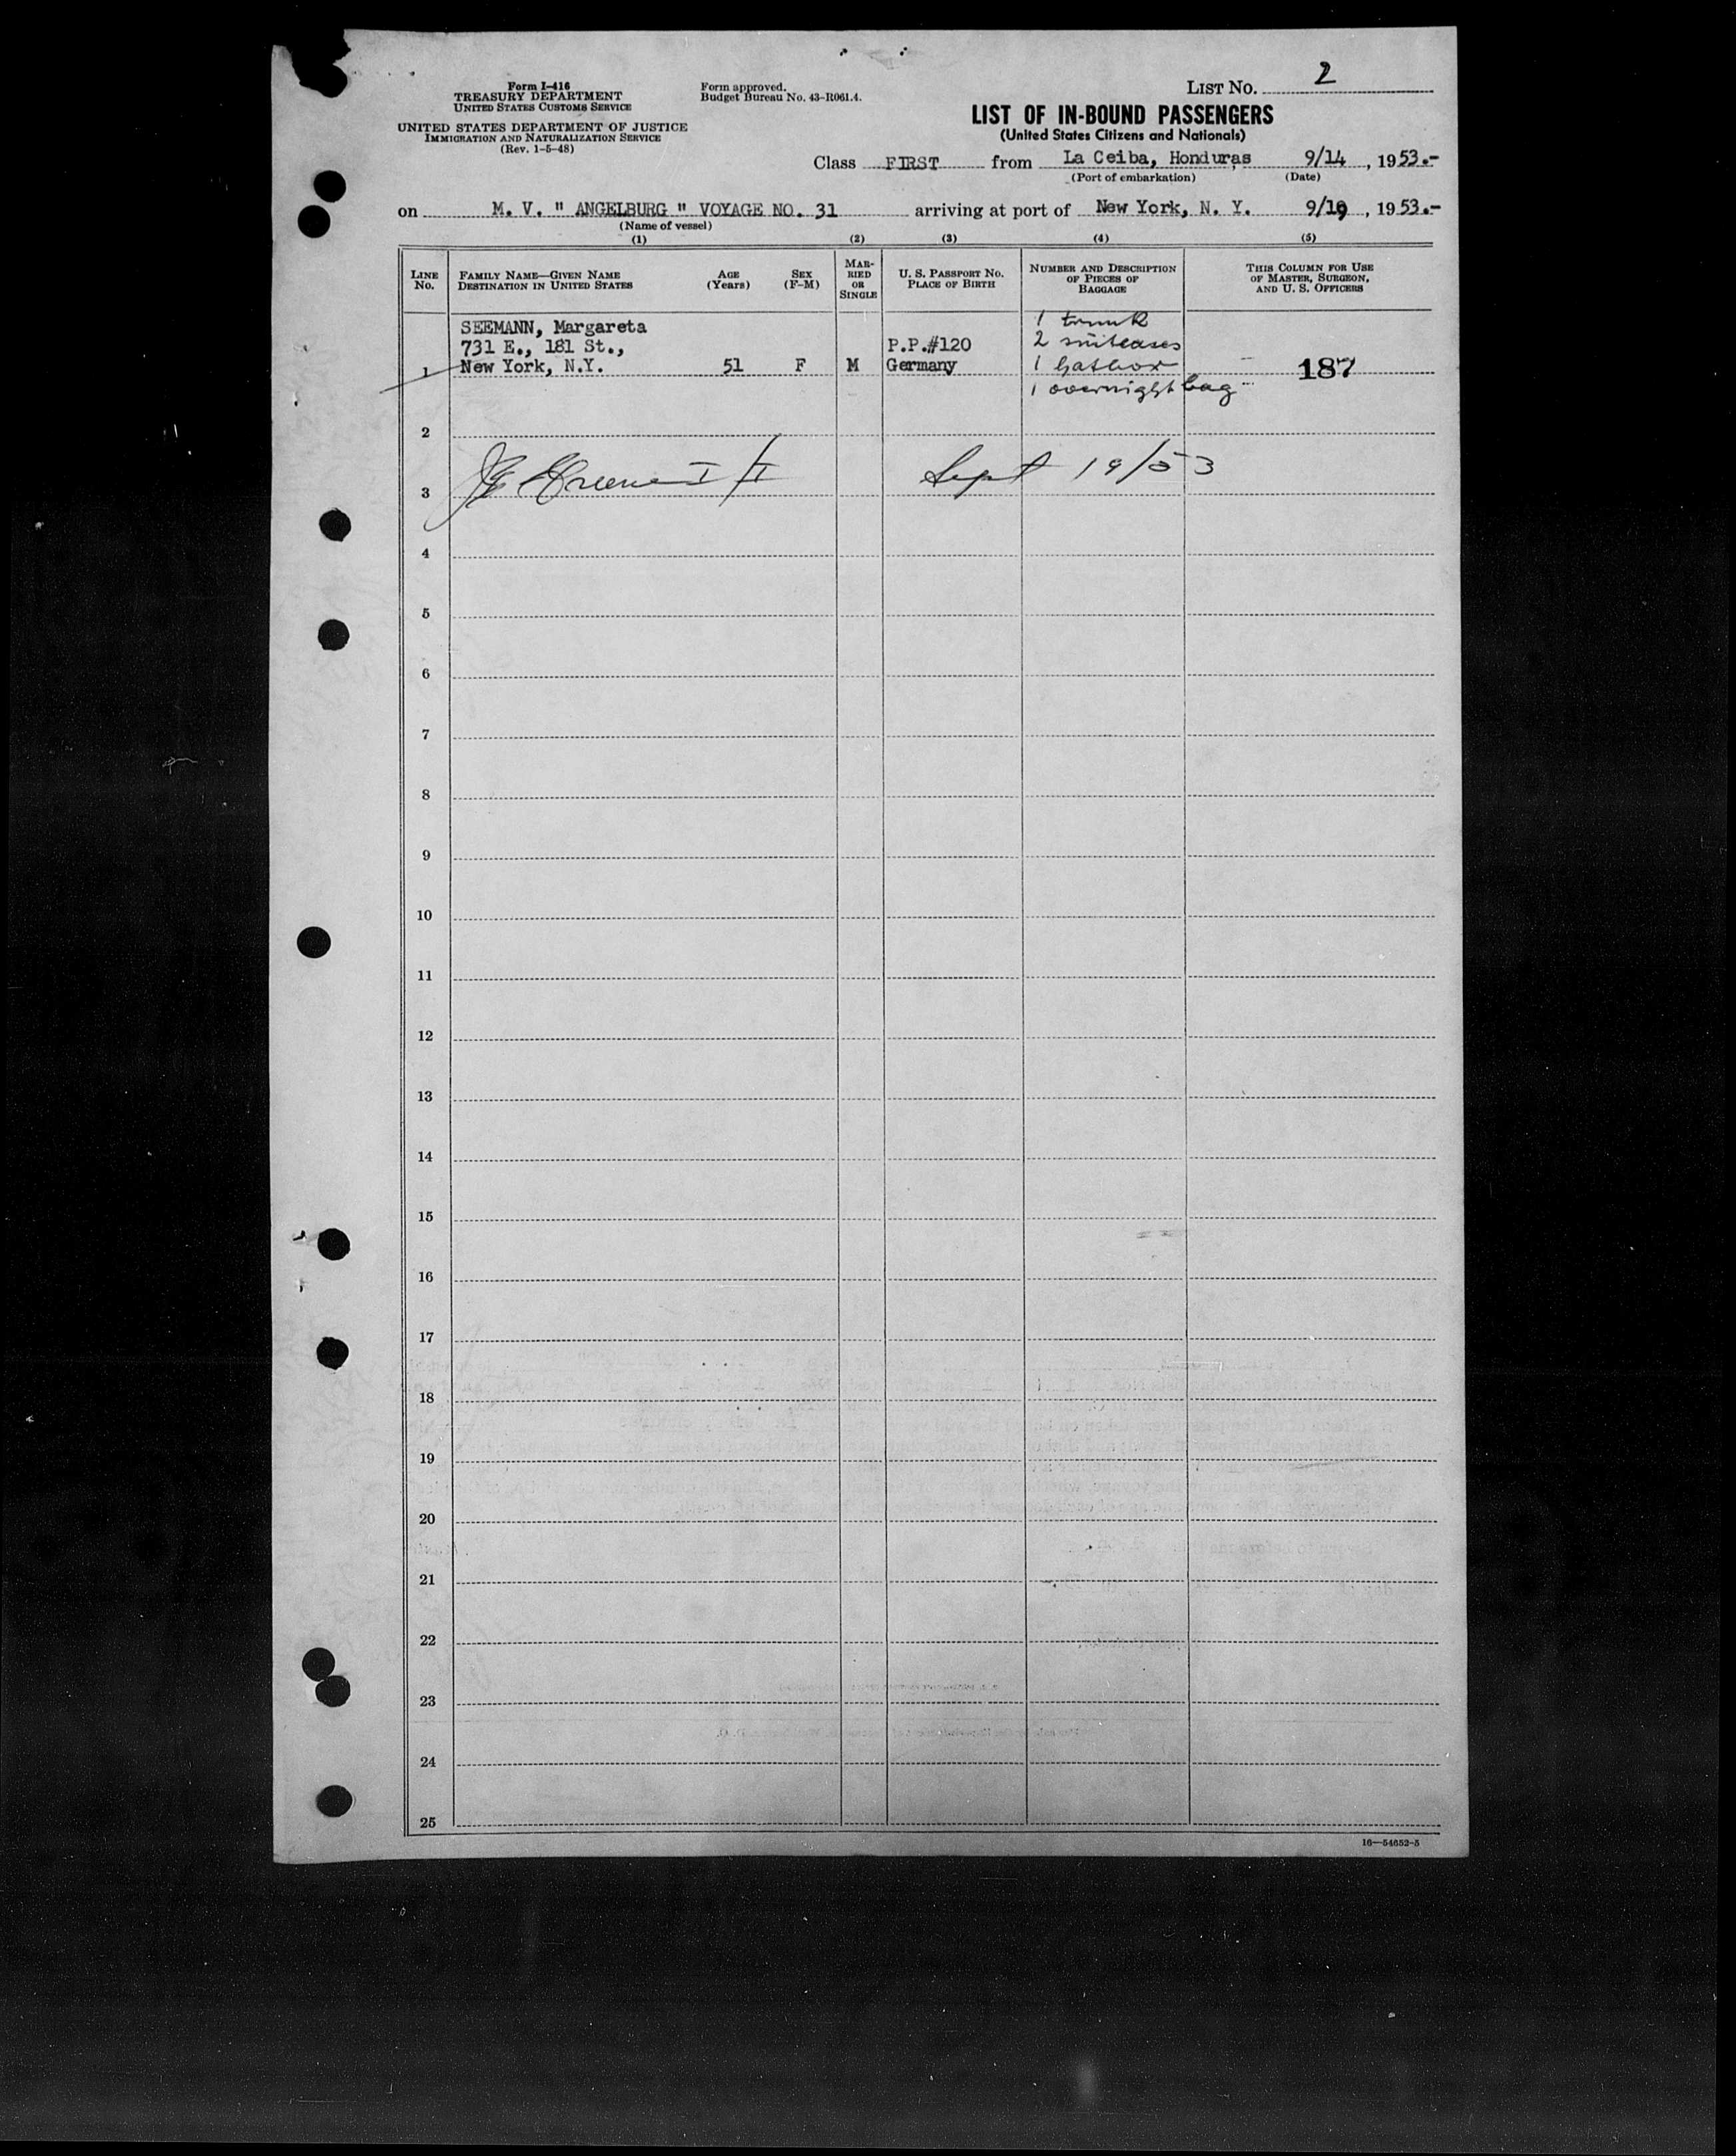 LIST No. 2
Form I-416
TREASURY DEPARTMENT
UNITED STATES CUSTOMS SERVICE
Form approved.
Budget Bureau No. 43-R061.4.
UNITED STATES DEPARTMENT OF JUSTICE
IMMIGRATION AND NATURALIZATION SERVICE
(Rev. 1-5-48)
LIST OF IN-BOUND PASSENGERS
(United States Citizens and Nationals)
Class FIRST from La Ceiba, Honduras 9/14, 1953.-
(Port of embarkation) (Date)
on M. V. " ANGELBURG " VOYAGE NO. 31 arriving at port of New York, N. Y. 9/19, 1953.-
(Name of vessel)
(1) (2) (3) (4) (5)
LINE No.
FAMILY NAME—GIVEN NAME
DESTINATION IN UNITED STATES
AGE (Years)
SEX (F-M)
MARRIED OR SINGLE
U. S. PASSPORT No.
PLACE OF BIRTH
NUMBER AND DESCRIPTION
OF PIECES OF
BAGGAGE
THIS COLUMN FOR USE
OF MASTER, SURGEON,
AND U. S. OFFICERS
SEEMANN, Margareta 1 trunk
731 E., 181 St., P.P.#120 2 suitcases
1 New York, N.Y. 51 F M Germany 1 hatbox 187
1 overnight bag
2
Greene Sept 19/53
3
4
5
6
7
8
9
10
11
12
13
14
15
16
17
18
19
20
21
22
23
24
25
16—54652-5